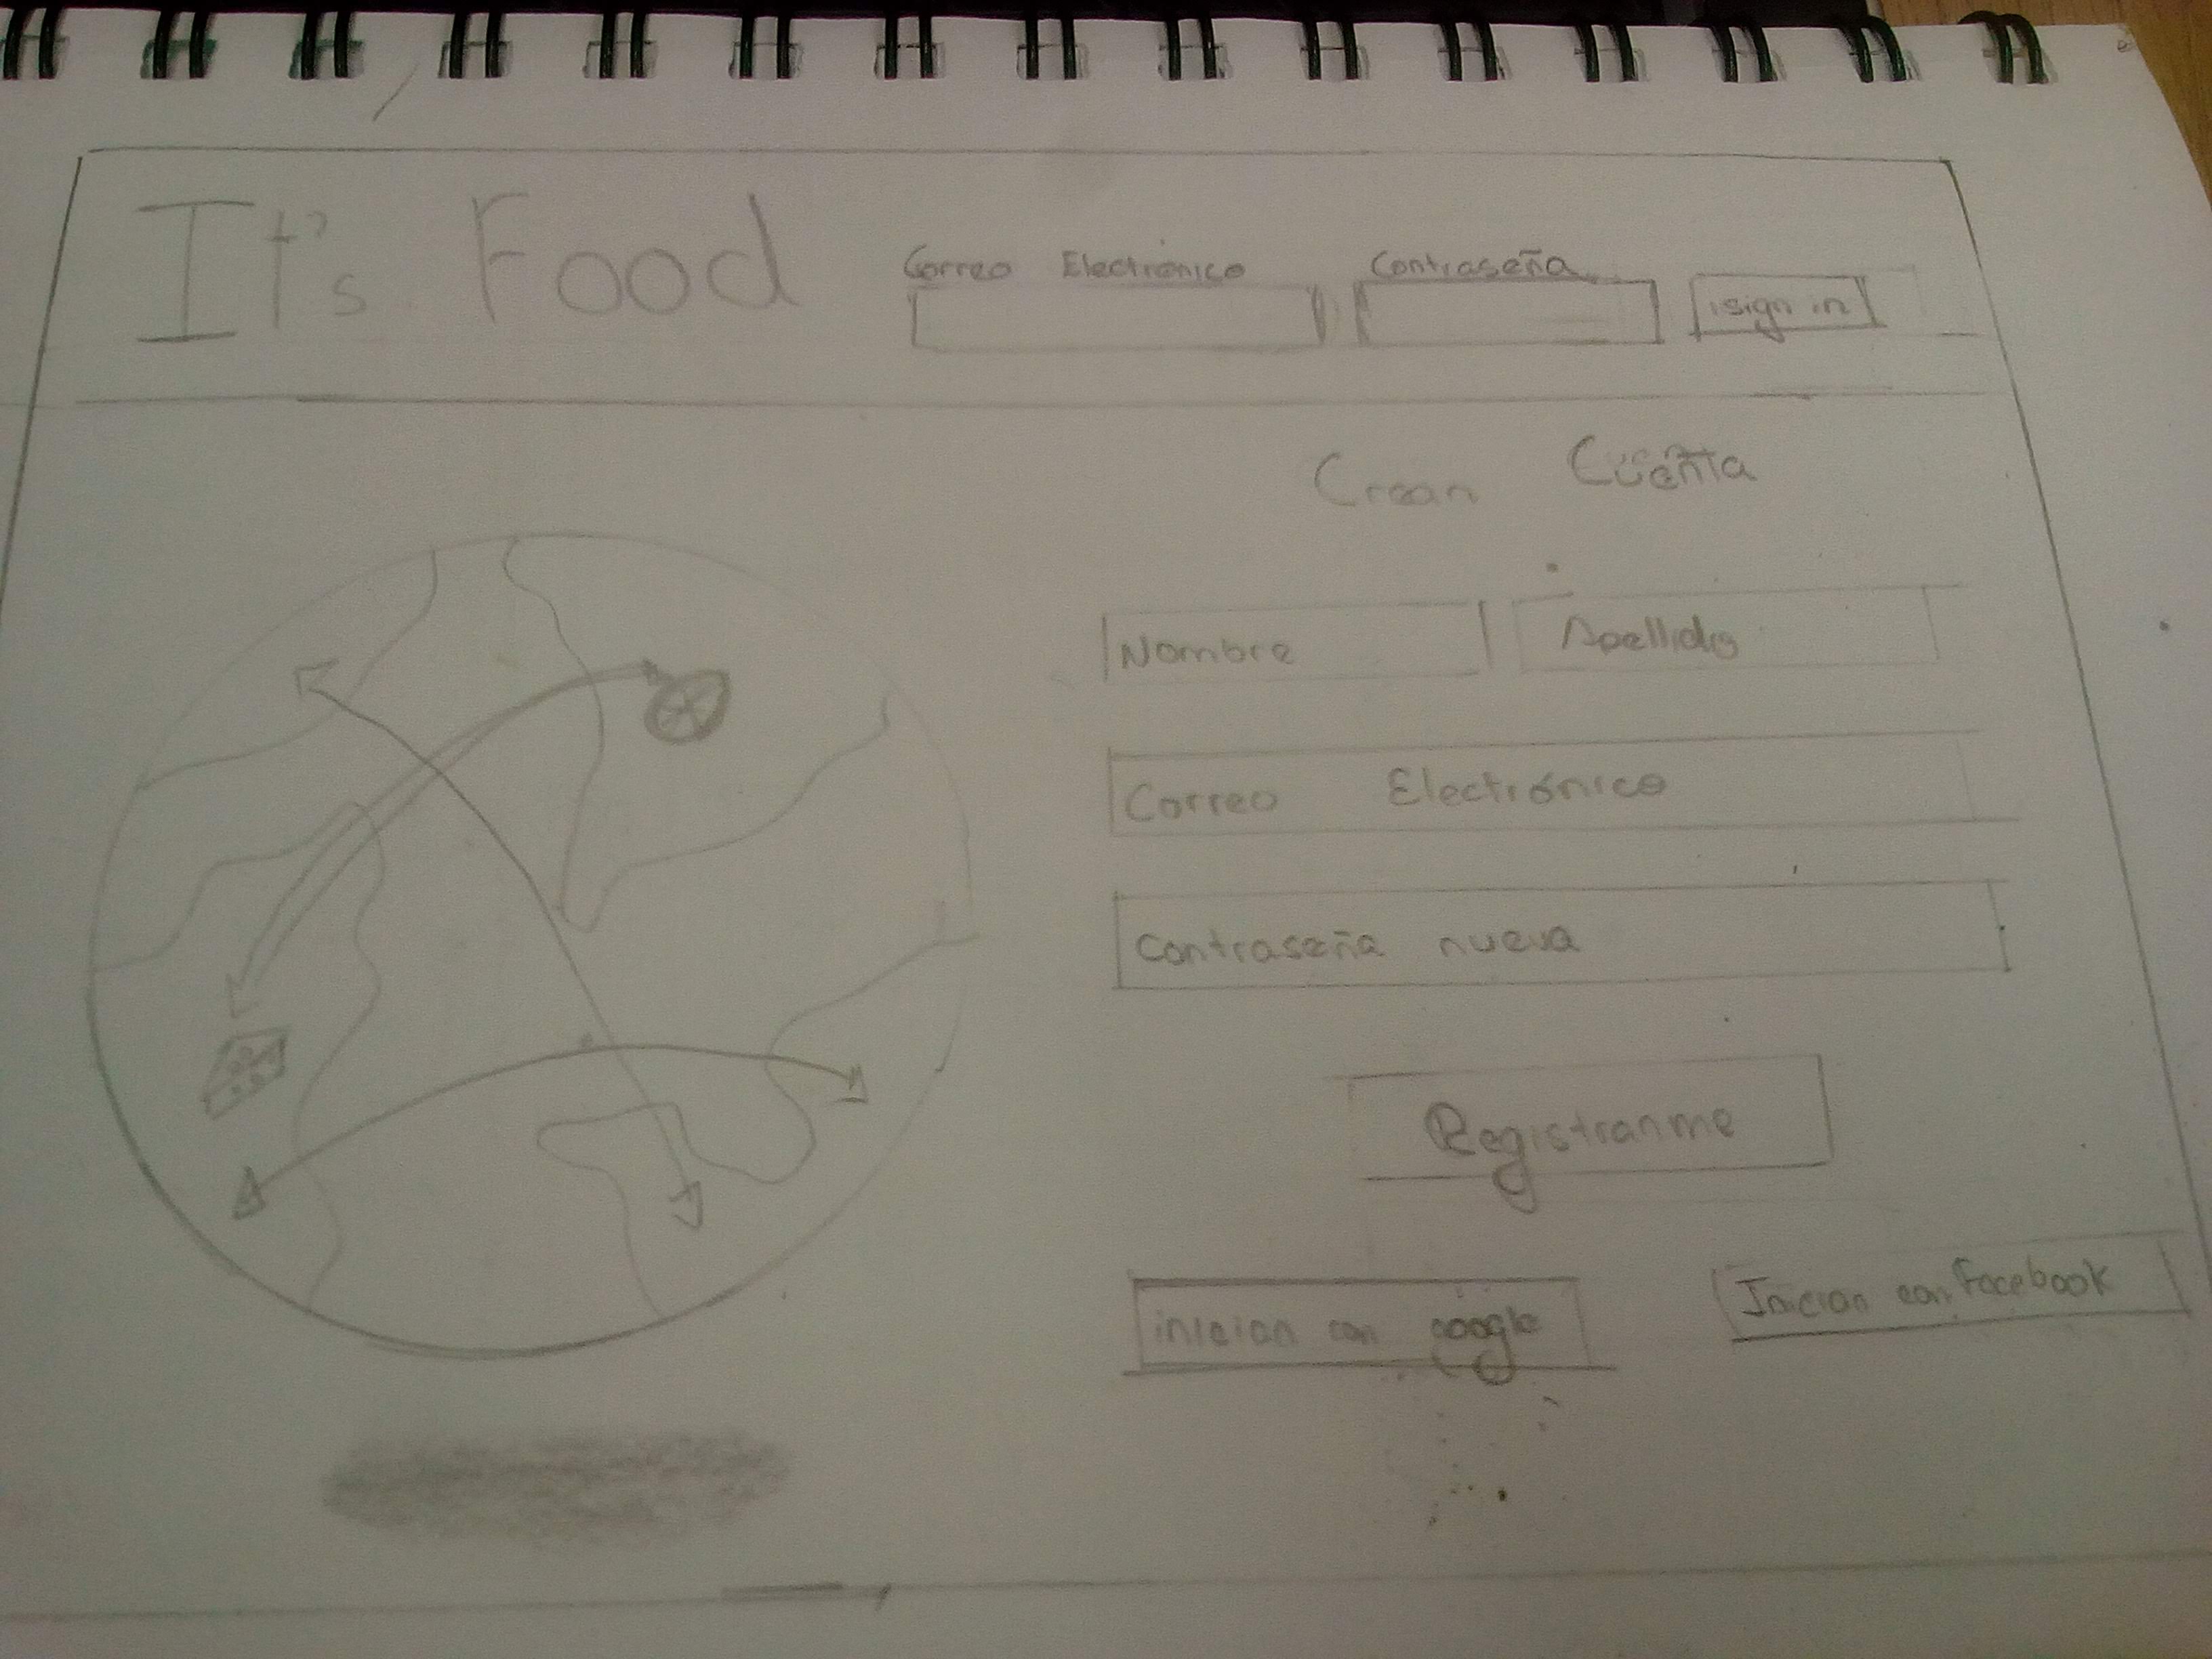 It's Food
Correo Electrónico
Contraseña
sign in
Crear Cuenta
Nombre
Apellido
Correo Electrónico
Contraseña nueva
Registrarme
iniciar con google
Iniciar con Facebook